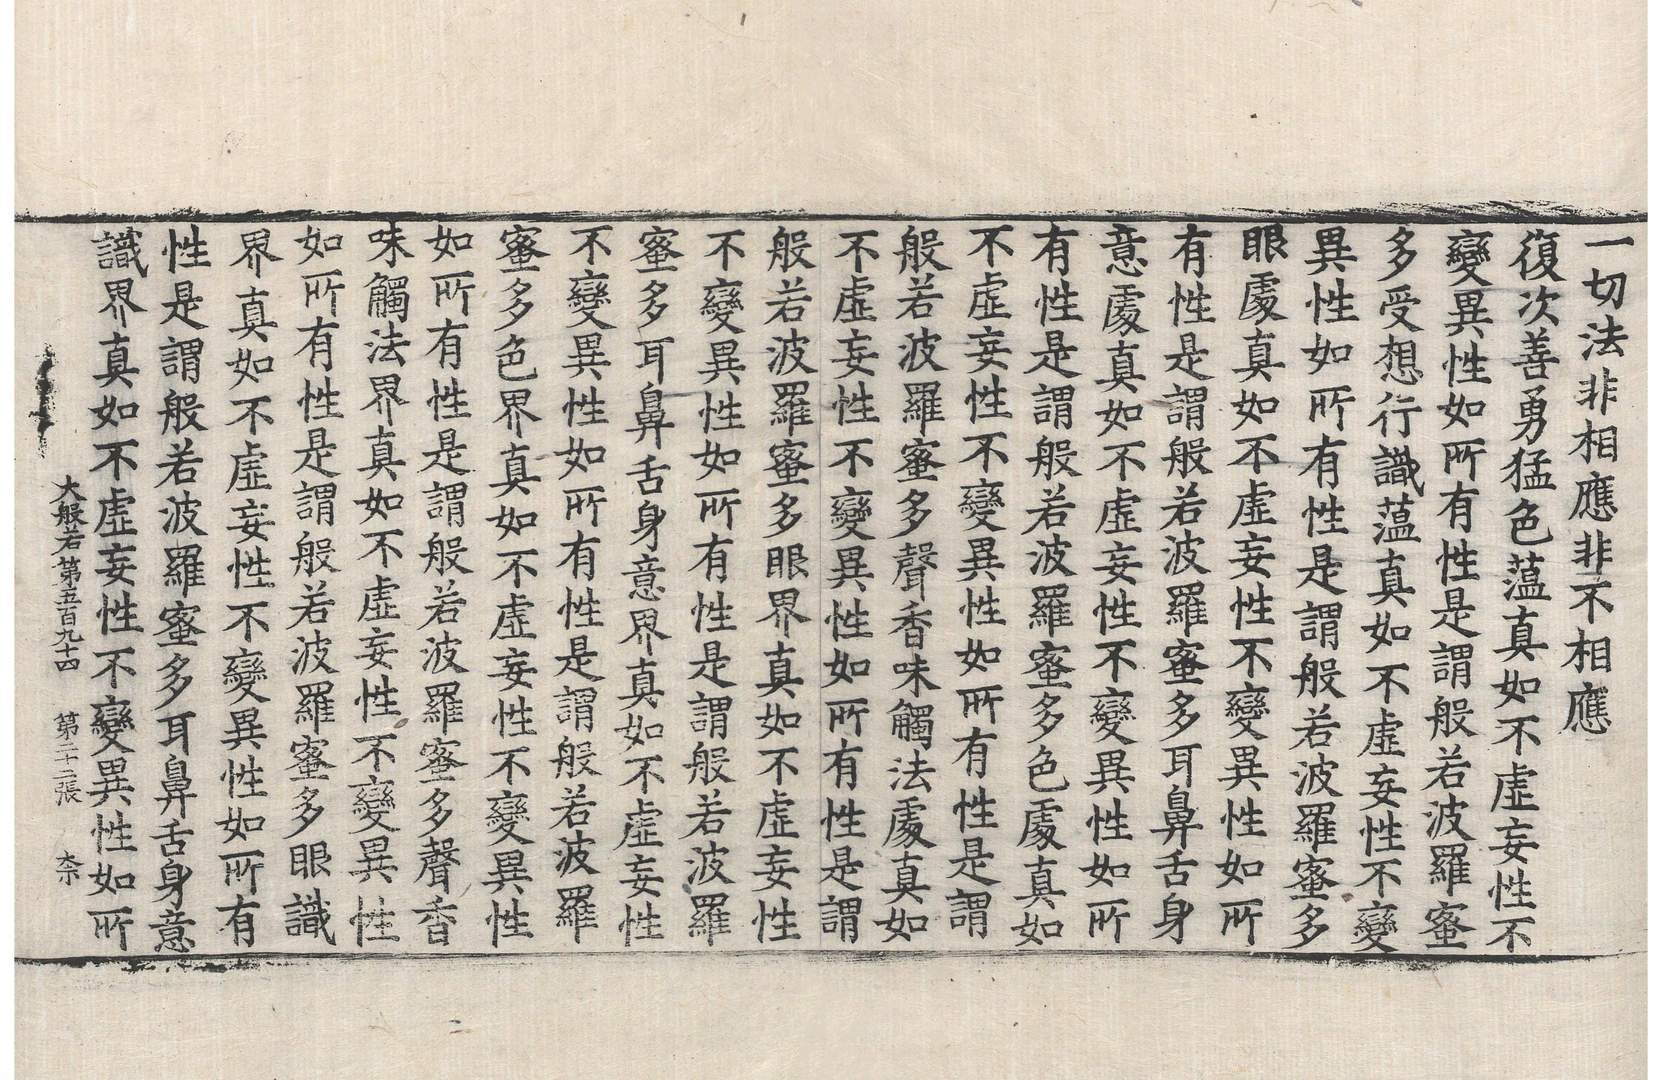 一切法非相應非不相應
復次善勇猛色薀真如不虛妄性不
變異性如所有性是謂般若波羅蜜
多受想行識薀真如不虛妄性不變
異性如所有性是謂般若波羅蜜多
眼處真如不虛妄性不變異性如所
有性是謂般若波羅蜜多耳鼻舌身
意處真如不虛妄性不變異性如所
有性是謂般若波羅蜜多色處真如
不虛妄性不變異性如所有性是謂
般若波羅蜜多聲香味觸法處真如
不虛妄性不變異性如所有性是謂
般若波羅蜜多眼界真如不虛妄性
不變異性如所有性是謂般若波羅
蜜多耳鼻舌身意界真如不虛妄性
不變異性如所有性是謂般若波羅
蜜多色界真如不虛妄性不變異性
如所有性是謂般若波羅蜜多聲香
味觸法界真如不虛妄性不變異性
如所有性是謂般若波羅蜜多眼識
界真如不虛妄性不變異性如所有
性是謂般若波羅蜜多耳鼻舌身意
識界真如不虛妄性不變異性如所
大般若第五百九十四 第二十二張 柰